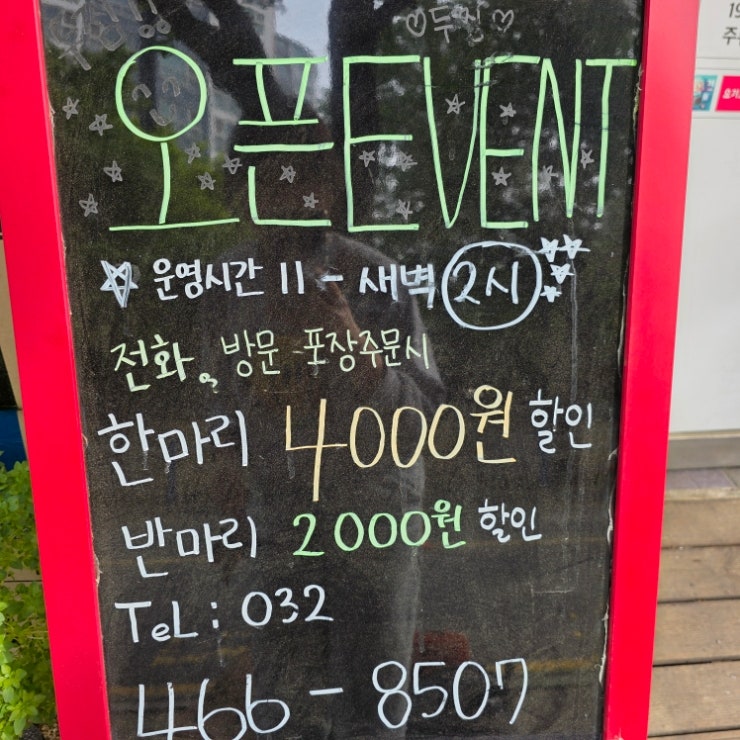 ♡두찜♡
오픈EVENT
☆ 운영시간 11 - 새벽 2시
전화, 방문 포장주문시
한마리 4000원 할인
반마리 2000원 할인
TeL : 032
466 - 8507